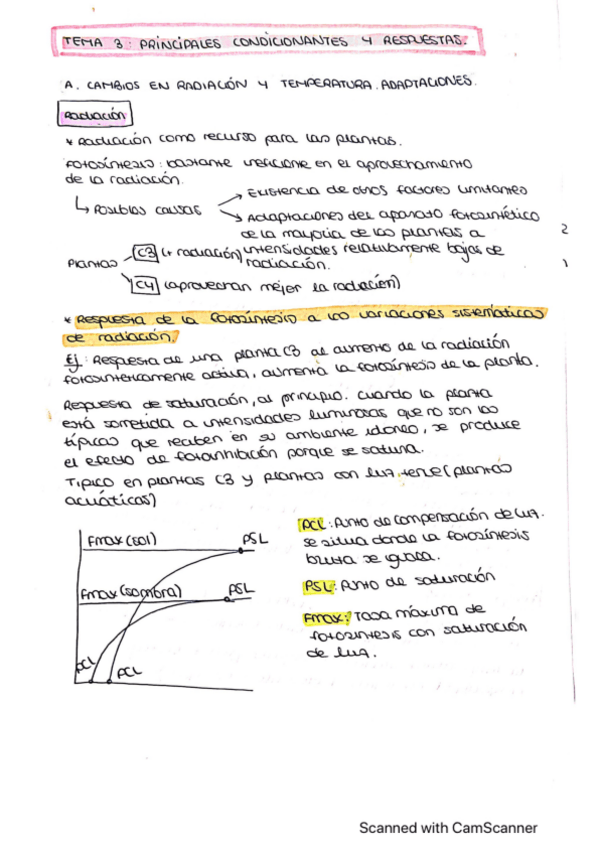 TEMA 3: PRINCIPALES CONDICIONANTES Y RESPUESTAS.
A. CAMBIOS EN RADIACIÓN Y TEMPERATURA. ADAPTACIONES.
Radiación
* Radiación como recurso para las plantas.
Fotosíntesis: bastante ineficiente en el aprovechamiento
de la radiación.
↳ Posibles causas
→ Existencia de otros factores limitantes
→ Adaptaciones del aparato fotosintético
de la mayoría de las plantas a
intensidades relativamente bajas de
radiación.
2
1
Plantas
C3 (+ radiación)
C4 (aprovechan mejor la radiación)
* Respuesta de la fotosíntesis a las variaciones sistemáticas
de radiación.
Ej: Respuesta de una planta C3 al aumento de la radiación
fotosintéticamente activa, aumenta la fotosíntesis de la planta.
Respuesta de saturación, al principio. cuando la planta
está sometida a intensidades luminosas que no son las
típicas que reciben en su ambiente idóneo, se produce
el efecto de fotoinhibición porque se satura.
Típico en plantas C3 y plantas con luz tenue (plantas
acuáticas)
Fmax (sol)
PSL
Fmax (sombra)
PSL
PCL
PCL
PCL: Punto de compensación de luz.
se situa donde la fotosíntesis
bruta se iguala.
PSL: Punto de saturación
Fmax: Tasa máxima de
fotosíntesis con saturación
de luz.
Scanned with CamScanner